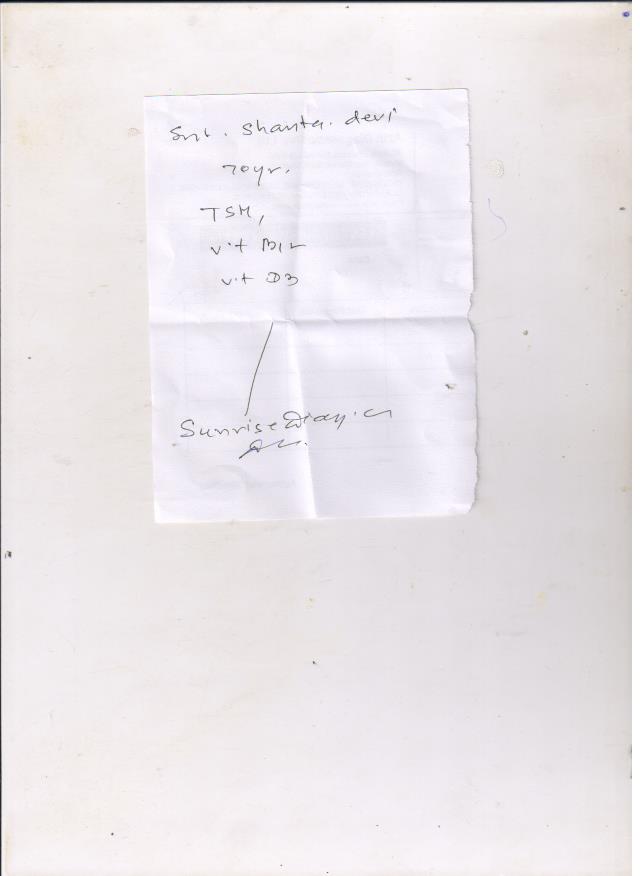 Smt. Shanta. devi
70yr.
TSH,
vit B12
vit D3
Sunrise